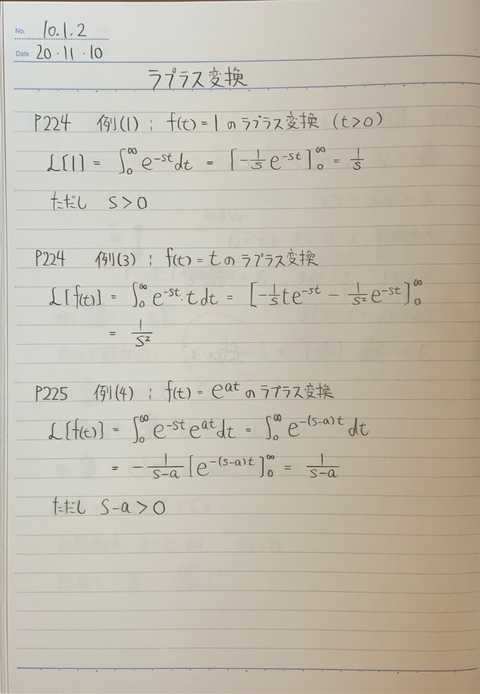 No. 10.1.2
Date 20・11・10
ラプラス変換
P224 例(1) ; f(t) = 1 のラプラス変換 (t>0)
L[1] = ∫₀^∞ e^{-st} dt = [-1/s e^{-st}]₀^∞ = 1/s
ただし s>0
P224 例(3) ; f(t) = t のラプラス変換
L[f(t)] = ∫₀^∞ e^{-st}·t dt = [-1/s te^{-st} - 1/s² e^{-st}]₀^∞
= 1/s²
P225 例(4) ; f(t) = e^{at} のラプラス変換
L[f(t)] = ∫₀^∞ e^{-st} e^{at} dt = ∫₀^∞ e^{-(s-a)t} dt
= -1/(s-a) [e^{-(s-a)t}]₀^∞ = 1/(s-a)
ただし s-a>0